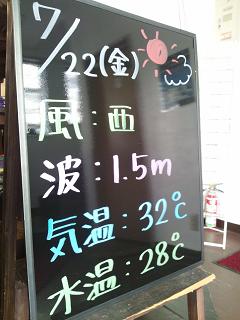 7/22(金)
風:西
波:1.5m
気温:32℃
水温:28℃